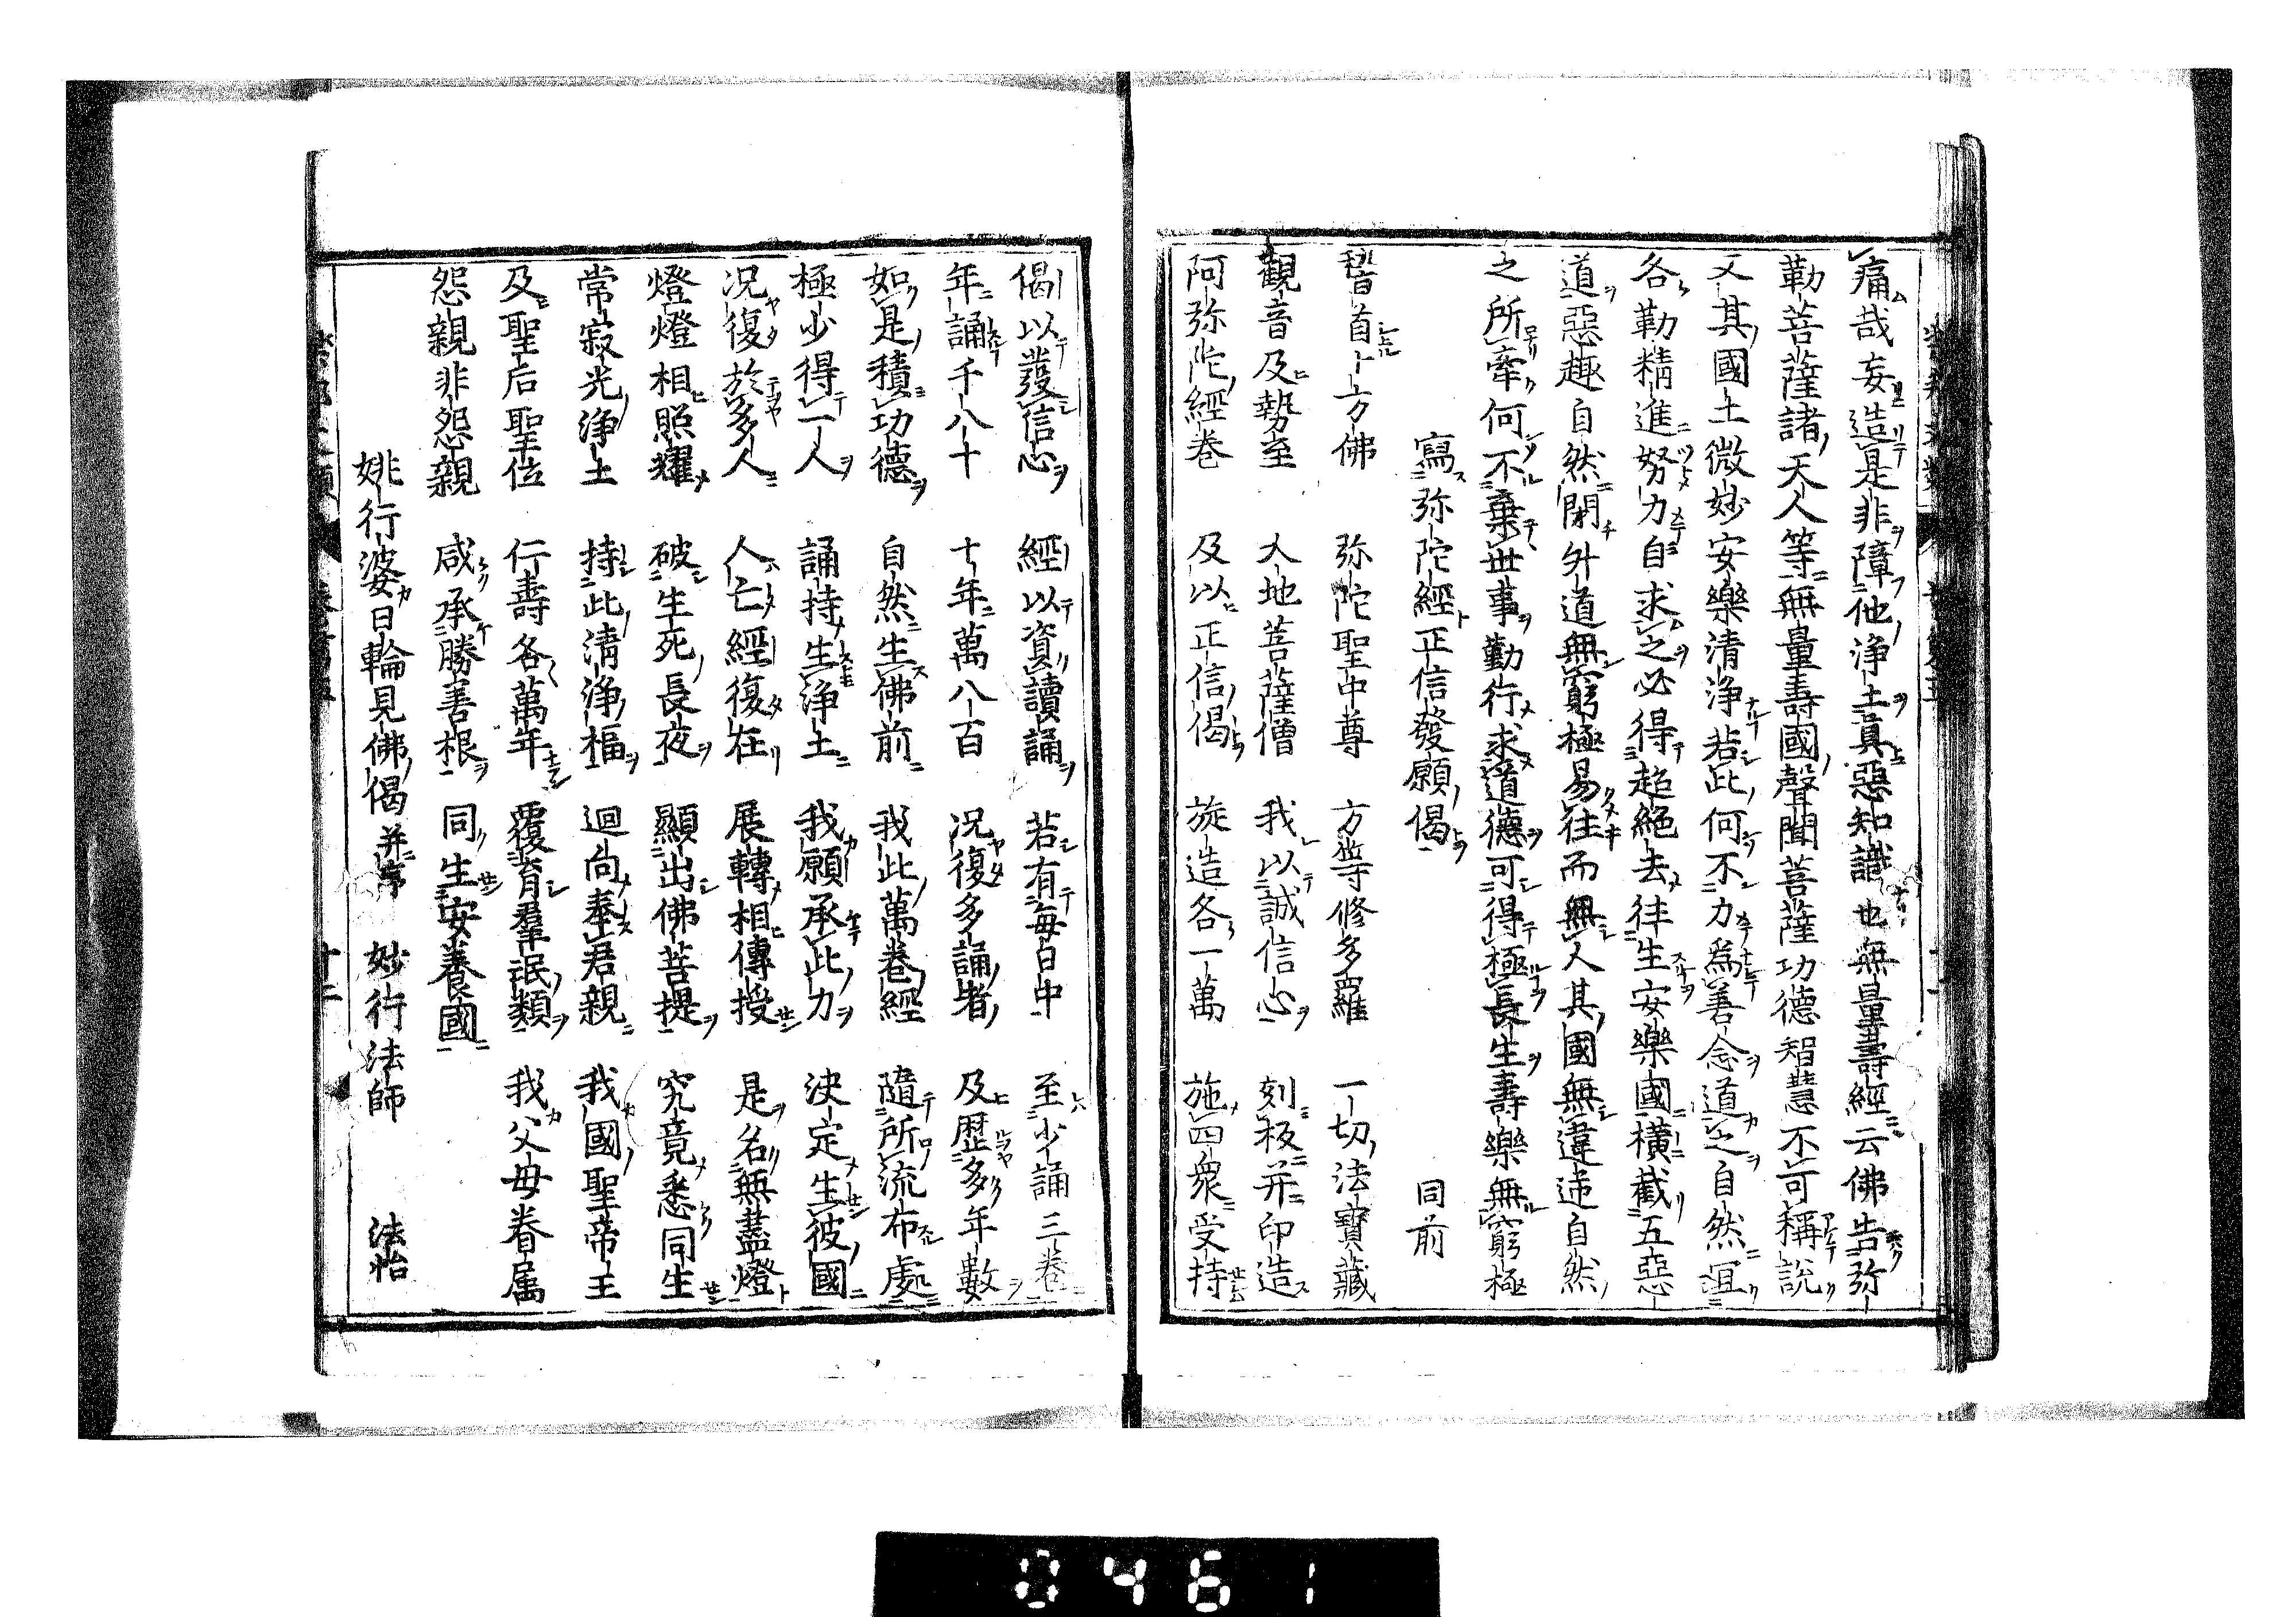 痛哉妄造是非障他淨土真惡知識也無量壽經云佛告弥
勒菩薩諸天人等無量壽國聲聞菩薩功德智慧不可稱說
又其國土微妙安樂清淨若此何不力爲善念道之自然
各勤精進努力自求之必得超絕去往生安樂國橫截五惡
道惡趣自然閉升道無窮極易往而無人其國無違逆自然
之所牽何不棄世事勤行求道德可得極長生壽樂無窮極
寫弥陀經正信發願偈 同前
稽首十方佛 弥陀聖中尊 方等修多羅 一切法寶藏
觀音及勢至 大地菩薩僧 我以誠信心 刻板并印造
阿弥陀經卷 及以正信偈 旋造各一萬 施四衆受持
偈以發信心 經以資讀誦 若有每日中 至少誦三卷
年誦千八十 十年萬八百 況復多誦者 及歷多年數
如是積功德 自然生佛前 我此萬卷經 隨所流布處
極少得一人 誦持生淨土 我願承此力 決定生彼國
況復於多人 人亡經復在 展轉相傳授 是名無盡燈
燈燈相照耀 破生死長夜 顯出佛菩提 究竟悉同生
常寂光淨土 持此清淨福 迴向奉君親 我國聖帝王
及聖后聖位 仁壽各萬年 覆育羣氓類 我父母眷属
怨親非怨親 咸承勝善根 同生安養國
姚行婆日輪見佛偈并序 妙行法師 法怡
十二
0461